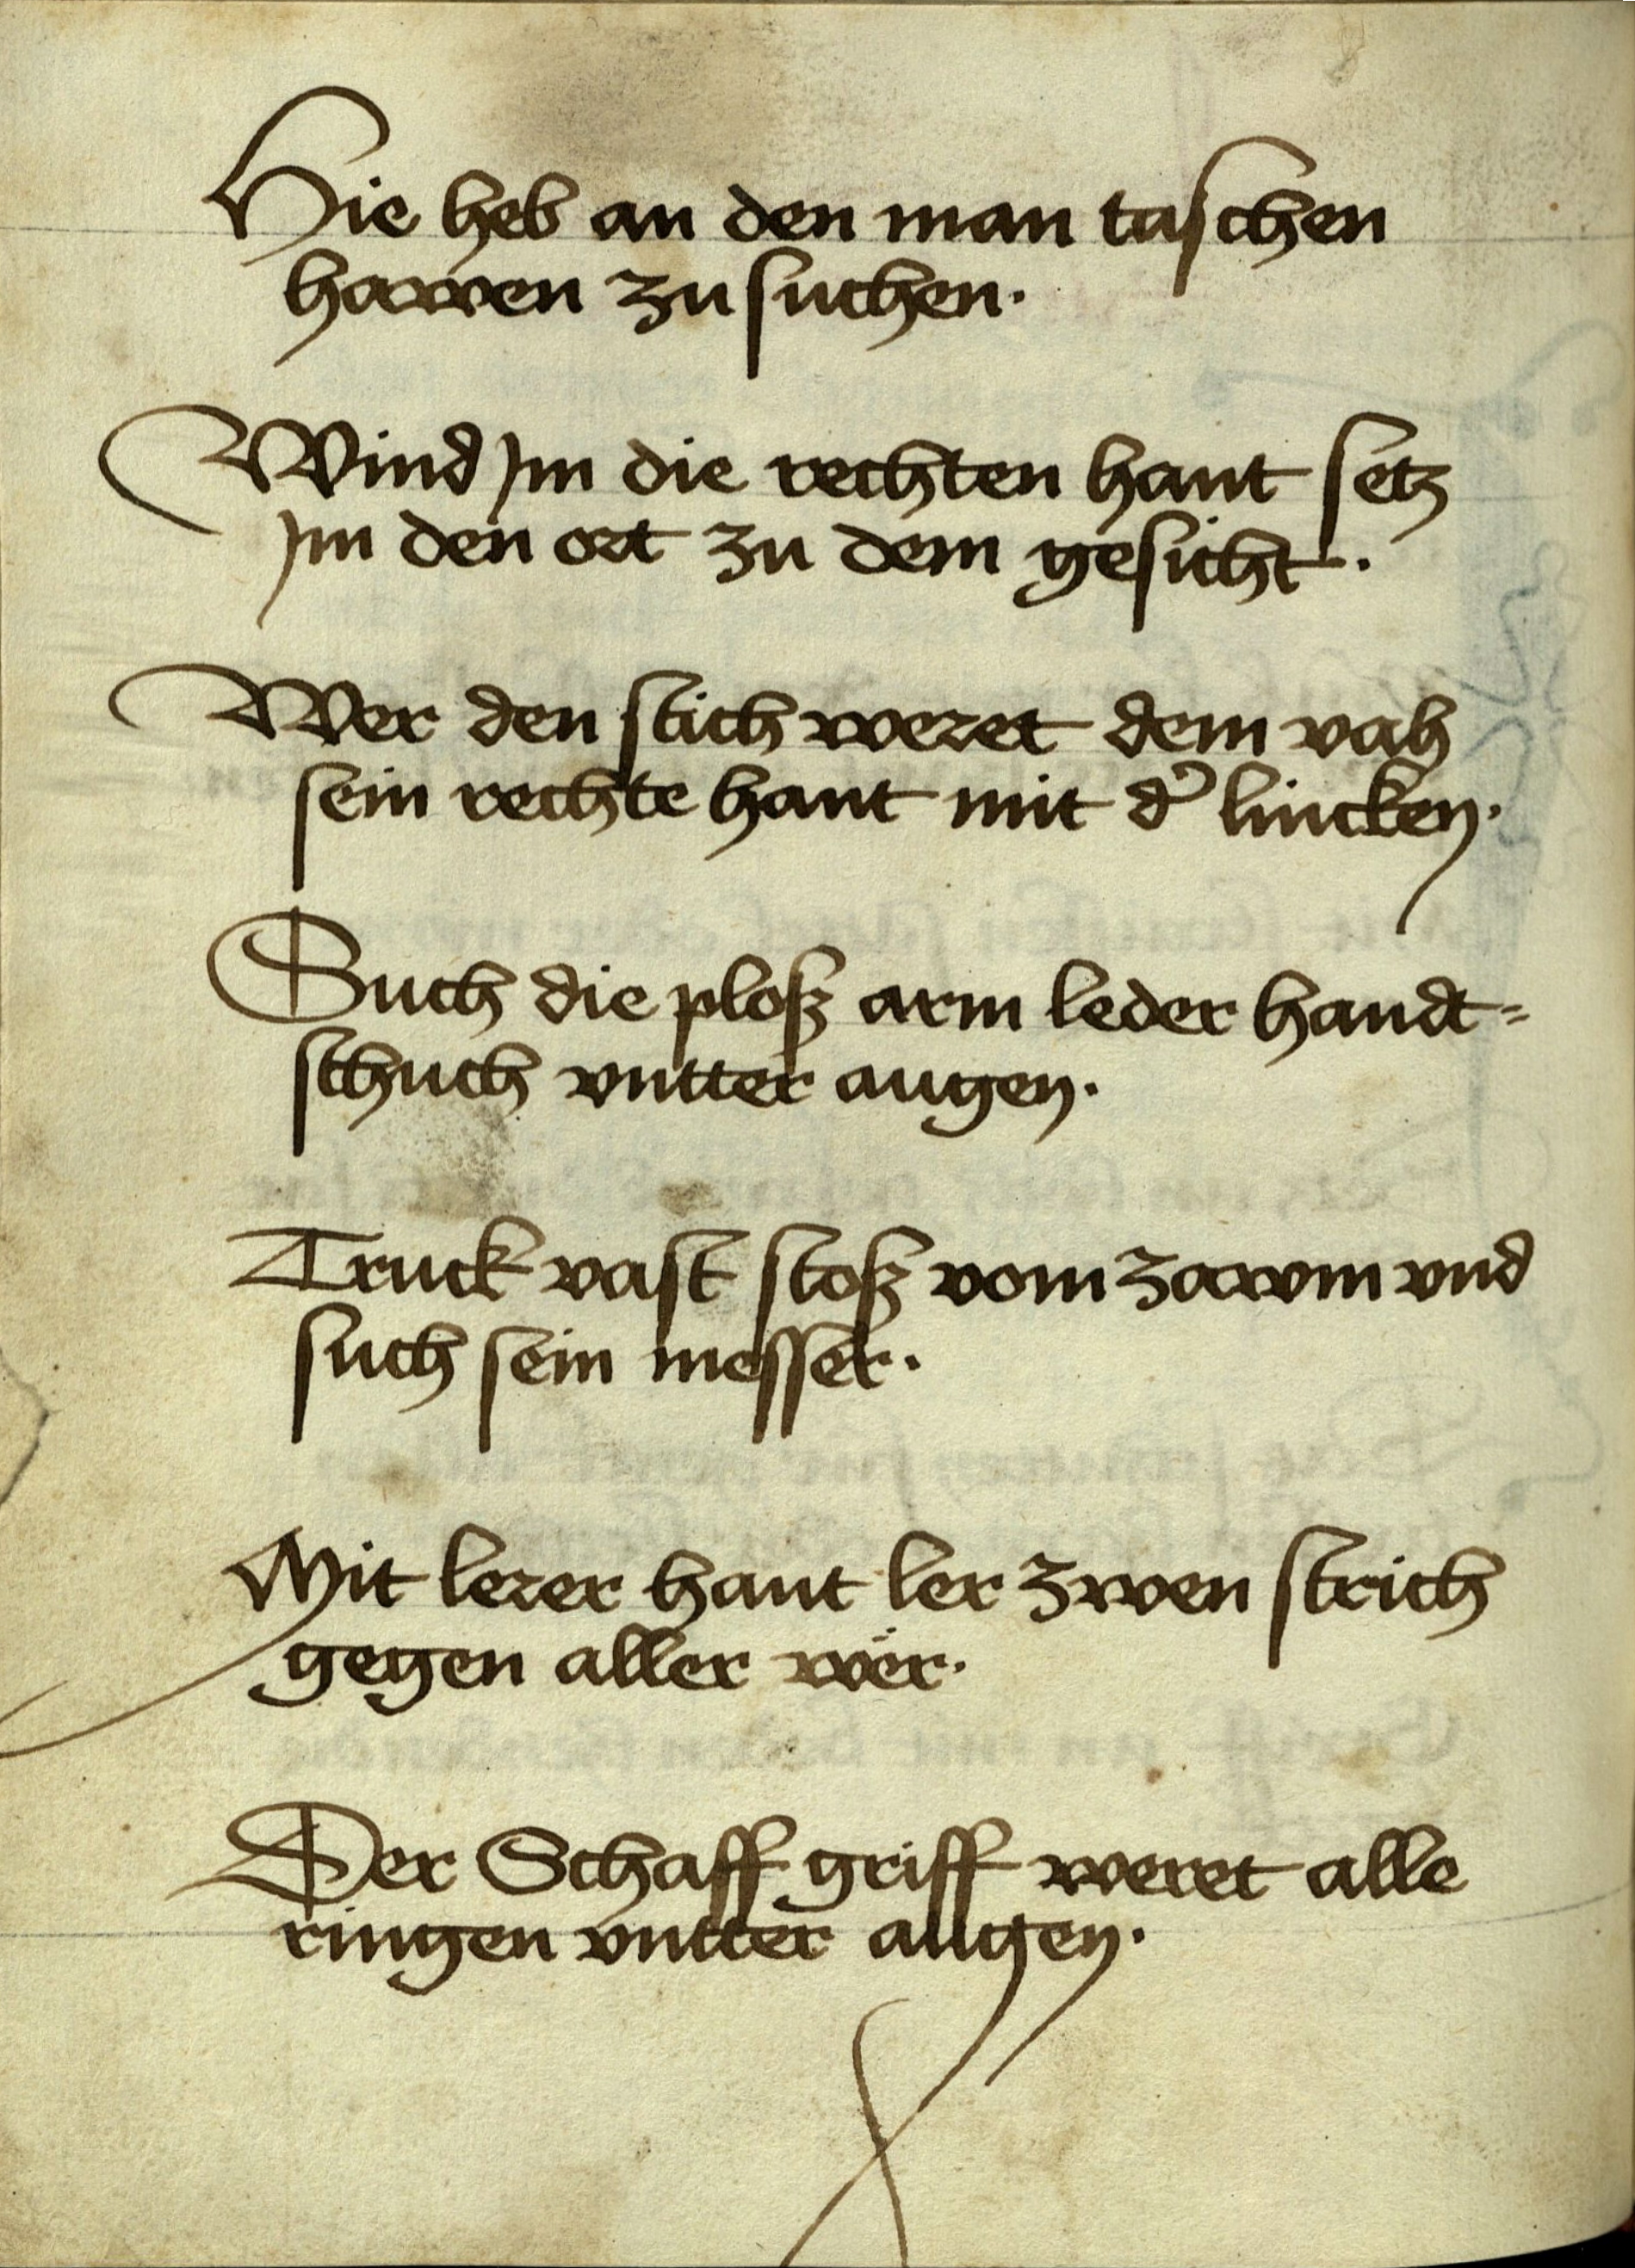 Hie heb an den man taschen
hawen zu suchen.
Wind Jm die rechten hant setz
Jm den ort zu dem gesicht.
Wer den stich weret dem vah
sein rechte hant mit d' lincken.
Such die plosz arm leder handt=
schuch vntter augen.
Truck vast stosz vom zawm vnd
such sein messer.
Mit lerer hant ler zwen strich
gegen aller wer.
Der Schaff griff weret alle
ringen vntter augen.